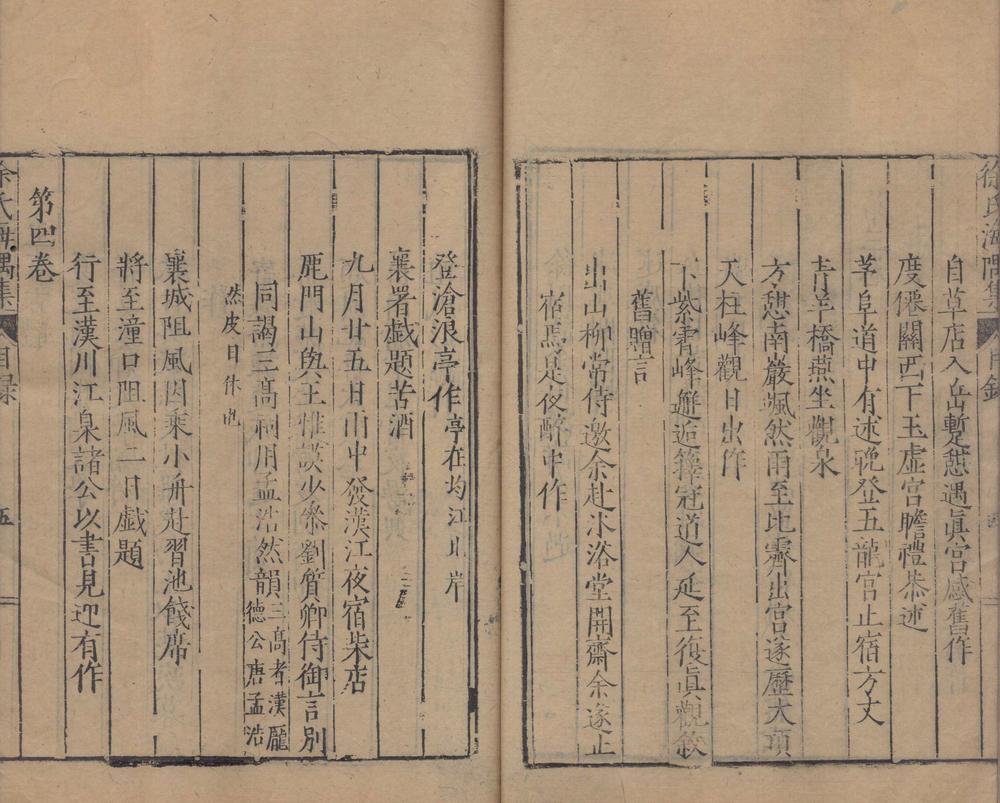 徐氏海隅集 目錄
自草店入岳蹔憩遇眞宮感舊作
度僊關西下玉虛宮瞻禮恭述
茅阜道中有述晚登五龍宮止宿方丈
青羊橋燕坐觀泉
方憩南巖颯然雨至比霽出宮遂歷大頂
天柱峰觀日出作
下紫霄峰邂逅籜冠道人延至復眞觀敘
舊贈言
出山柳常侍邀余赴沐浴堂開齋余遂止
宿焉是夜醉中作
登滄浪亭作亭在均江北岸
襄署戲題苦酒
九月廿五日雨中發漢江夜宿柴店
鹿門山與王惟謨少參劉質卿侍御言別
同謁三高祠用孟浩然韻三高者漢龐德公唐孟浩
然皮日休也
襄城阻風因乘小舟赴習池餞席
將至潼口阻風二日戲題
行至漢川江臬諸公以書見迎有作
第四卷
徐氏海隅集 目錄 五